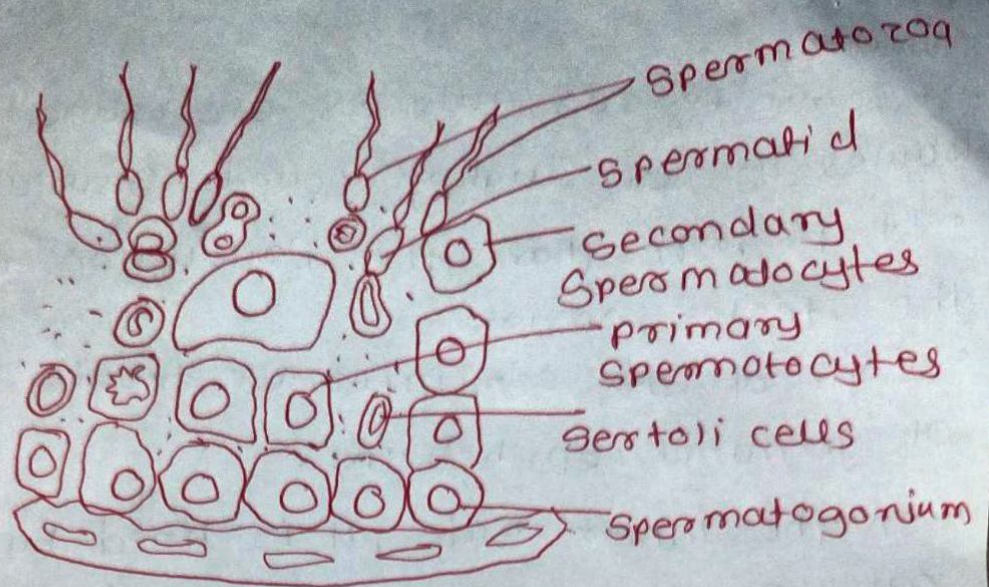 Spermatozoa
Spermatid
Secondary
Spermatocytes
primary
spermotocytes
Sertoli cells
Spermatogonium